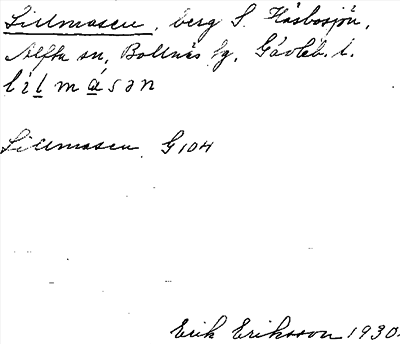 Lillmasen, berg S. Håsbosjön,
Alfta sn, Bollnäs tg, Gävleb. l.
lilmásən
Lillmasen G 104
Erik Eriksson 1930.